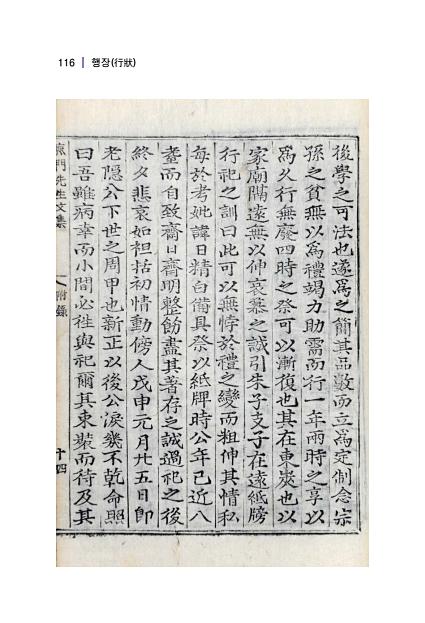 116 | 행장(行狀)
後學之可法也遂爲之簡其品數而立爲定制念宗
孫之貧無以爲禮竭力助需而行一年兩時之享以
爲久行無廢四時之祭可以漸復也其在東峽也以
家廟隔遠無以伸哀慕之誠引朱子支子在遠紙牓
行祀之訓曰此可以無悖於禮之變而粗伸其情私
每於考妣諱日精白備具祭以紙牌時公年已近八
耋而自致齋日齊明整飭盡其著存之誠過祀之後
終夕悲哀如袒括初情動傍人戊申元月廿五日卽
老隱公下世之周甲也新正以後公淚幾不乾命照
曰吾雖病幸而小間必往與祀爾其束裝而待及其
門先生文集
附錄
十四